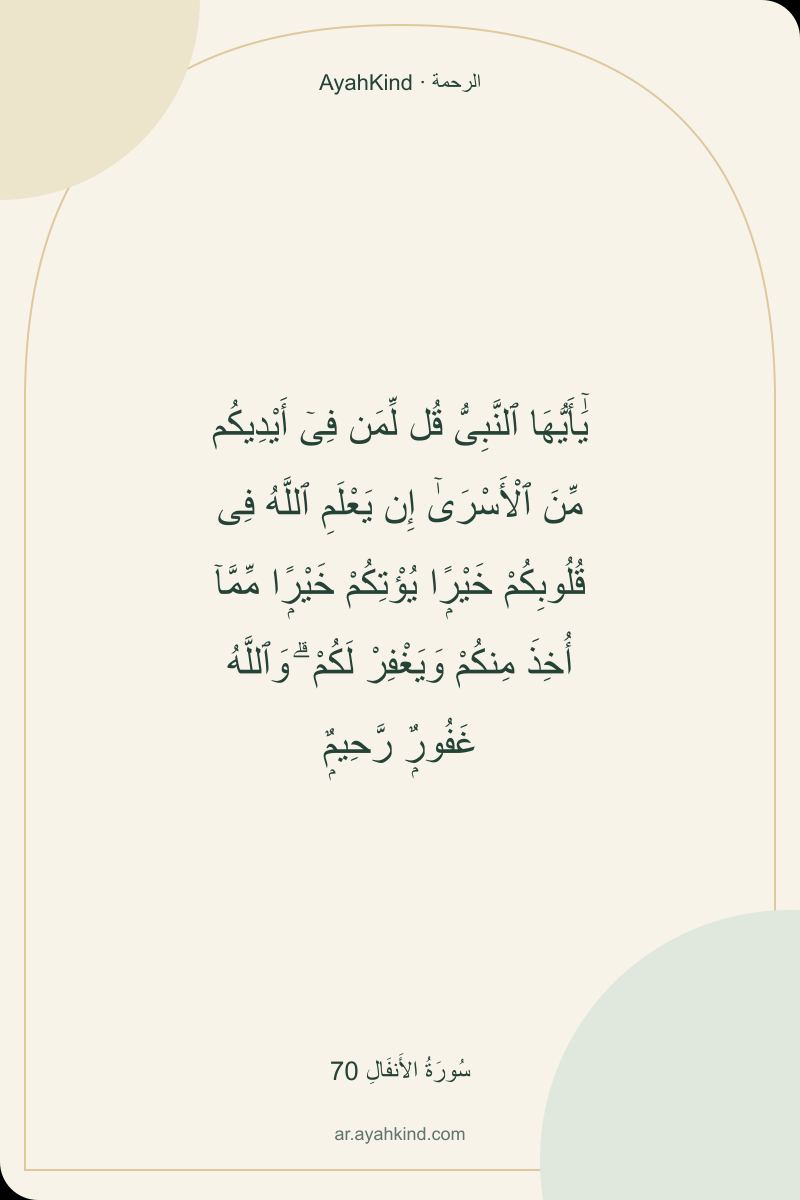 AyahKind · الرحمة
يَٰٓأَيُّهَا ٱلنَّبِىُّ قُل لِّمَن فِىٓ أَيْدِيكُم
مِّنَ ٱلْأَسْرَىٰٓ إِن يَعْلَمِ ٱللَّهُ فِى
قُلُوبِكُمْ خَيْرًۭا يُؤْتِكُمْ خَيْرًۭا مِّمَّآ
أُخِذَ مِنكُمْ وَيَغْفِرْ لَكُمْ ۗ وَٱللَّهُ
غَفُورٌۭ رَّحِيمٌۭ
سُورَةُ الأَنفَالِ 70
ar.ayahkind.com